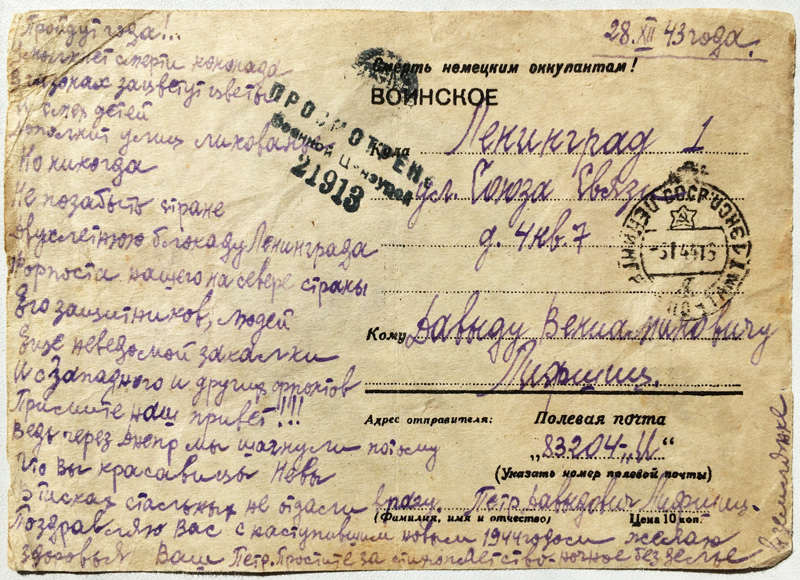 Пройдут года!..
Умолкнет смерти канонада
В газонах зацветут цветы
И смех детей
Заполнит улиц ликованье
Но никогда
Не позабыть стране
Двухлетнюю блокаду Ленинграда
Форпоста нашего на севере страны
Его защитников, людей
Еще неведомой закалки
И с Западного и других фронтов
Примите наш привет!!!
Ведь через Днепр мы шагнули потому
Что Вы красавицы Невы
В тисках стальных не отдали врагу.
Поздравляю Вас с наступившим новым 1944 годом желаю
здоровья Ваш Петр. Простите за стихоплетство-ночное безделье
в землянке
28.XII 43 года.
Смерть немецким оккупантам!
ВОИНСКОЕ
ПРОСМОТРЕНО
Военной Цензурой
21913
Куда Ленинград 1
ул. Союза Связи
д. 4 кв. 7
Кому Давыду Вениаминовичу
Лифшиц.
Адрес отправителя: Полевая почта
„83204-„И"
(Указать номер полевой почты)
Петр Давыдович Лифшиц.
(Фамилия, имя и отчество) Цена 10 коп.
СССР